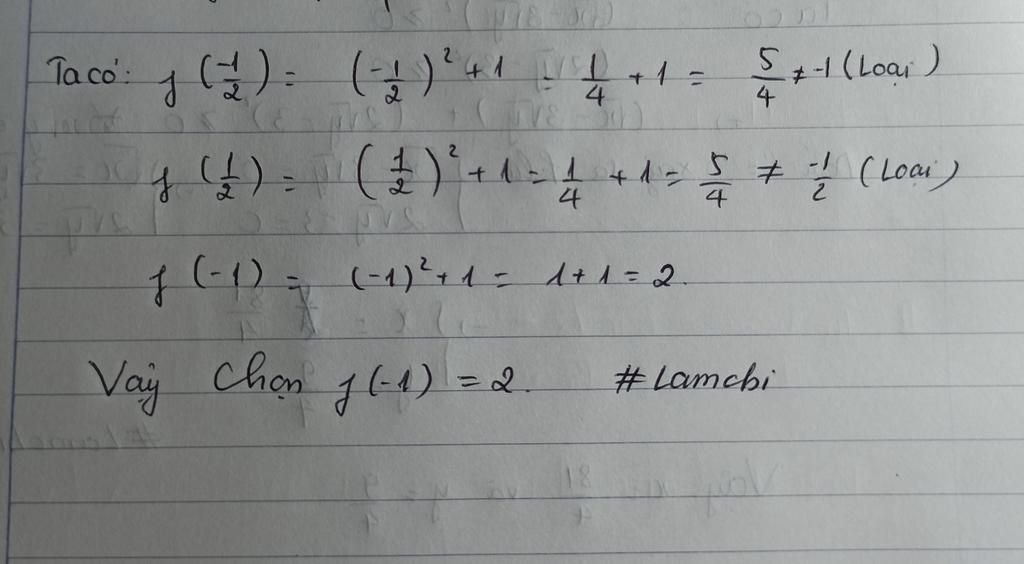 Ta có: f(-1/2) = (-1/2)² + 1 = 1/4 + 1 = 5/4 ≠ -1 (Loại)
f(1/2) = (1/2)² + 1 = 1/4 + 1 = 5/4 ≠ -1/2 (Loại)
f(-1) = (-1)² + 1 = 1 + 1 = 2.
Vậy Chọn f(-1) = 2. #Lamchi